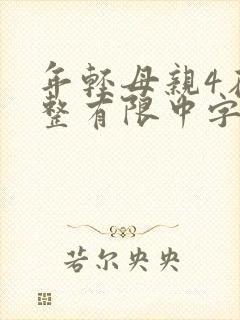 年轻母親4在
整有限中字
若尔央央